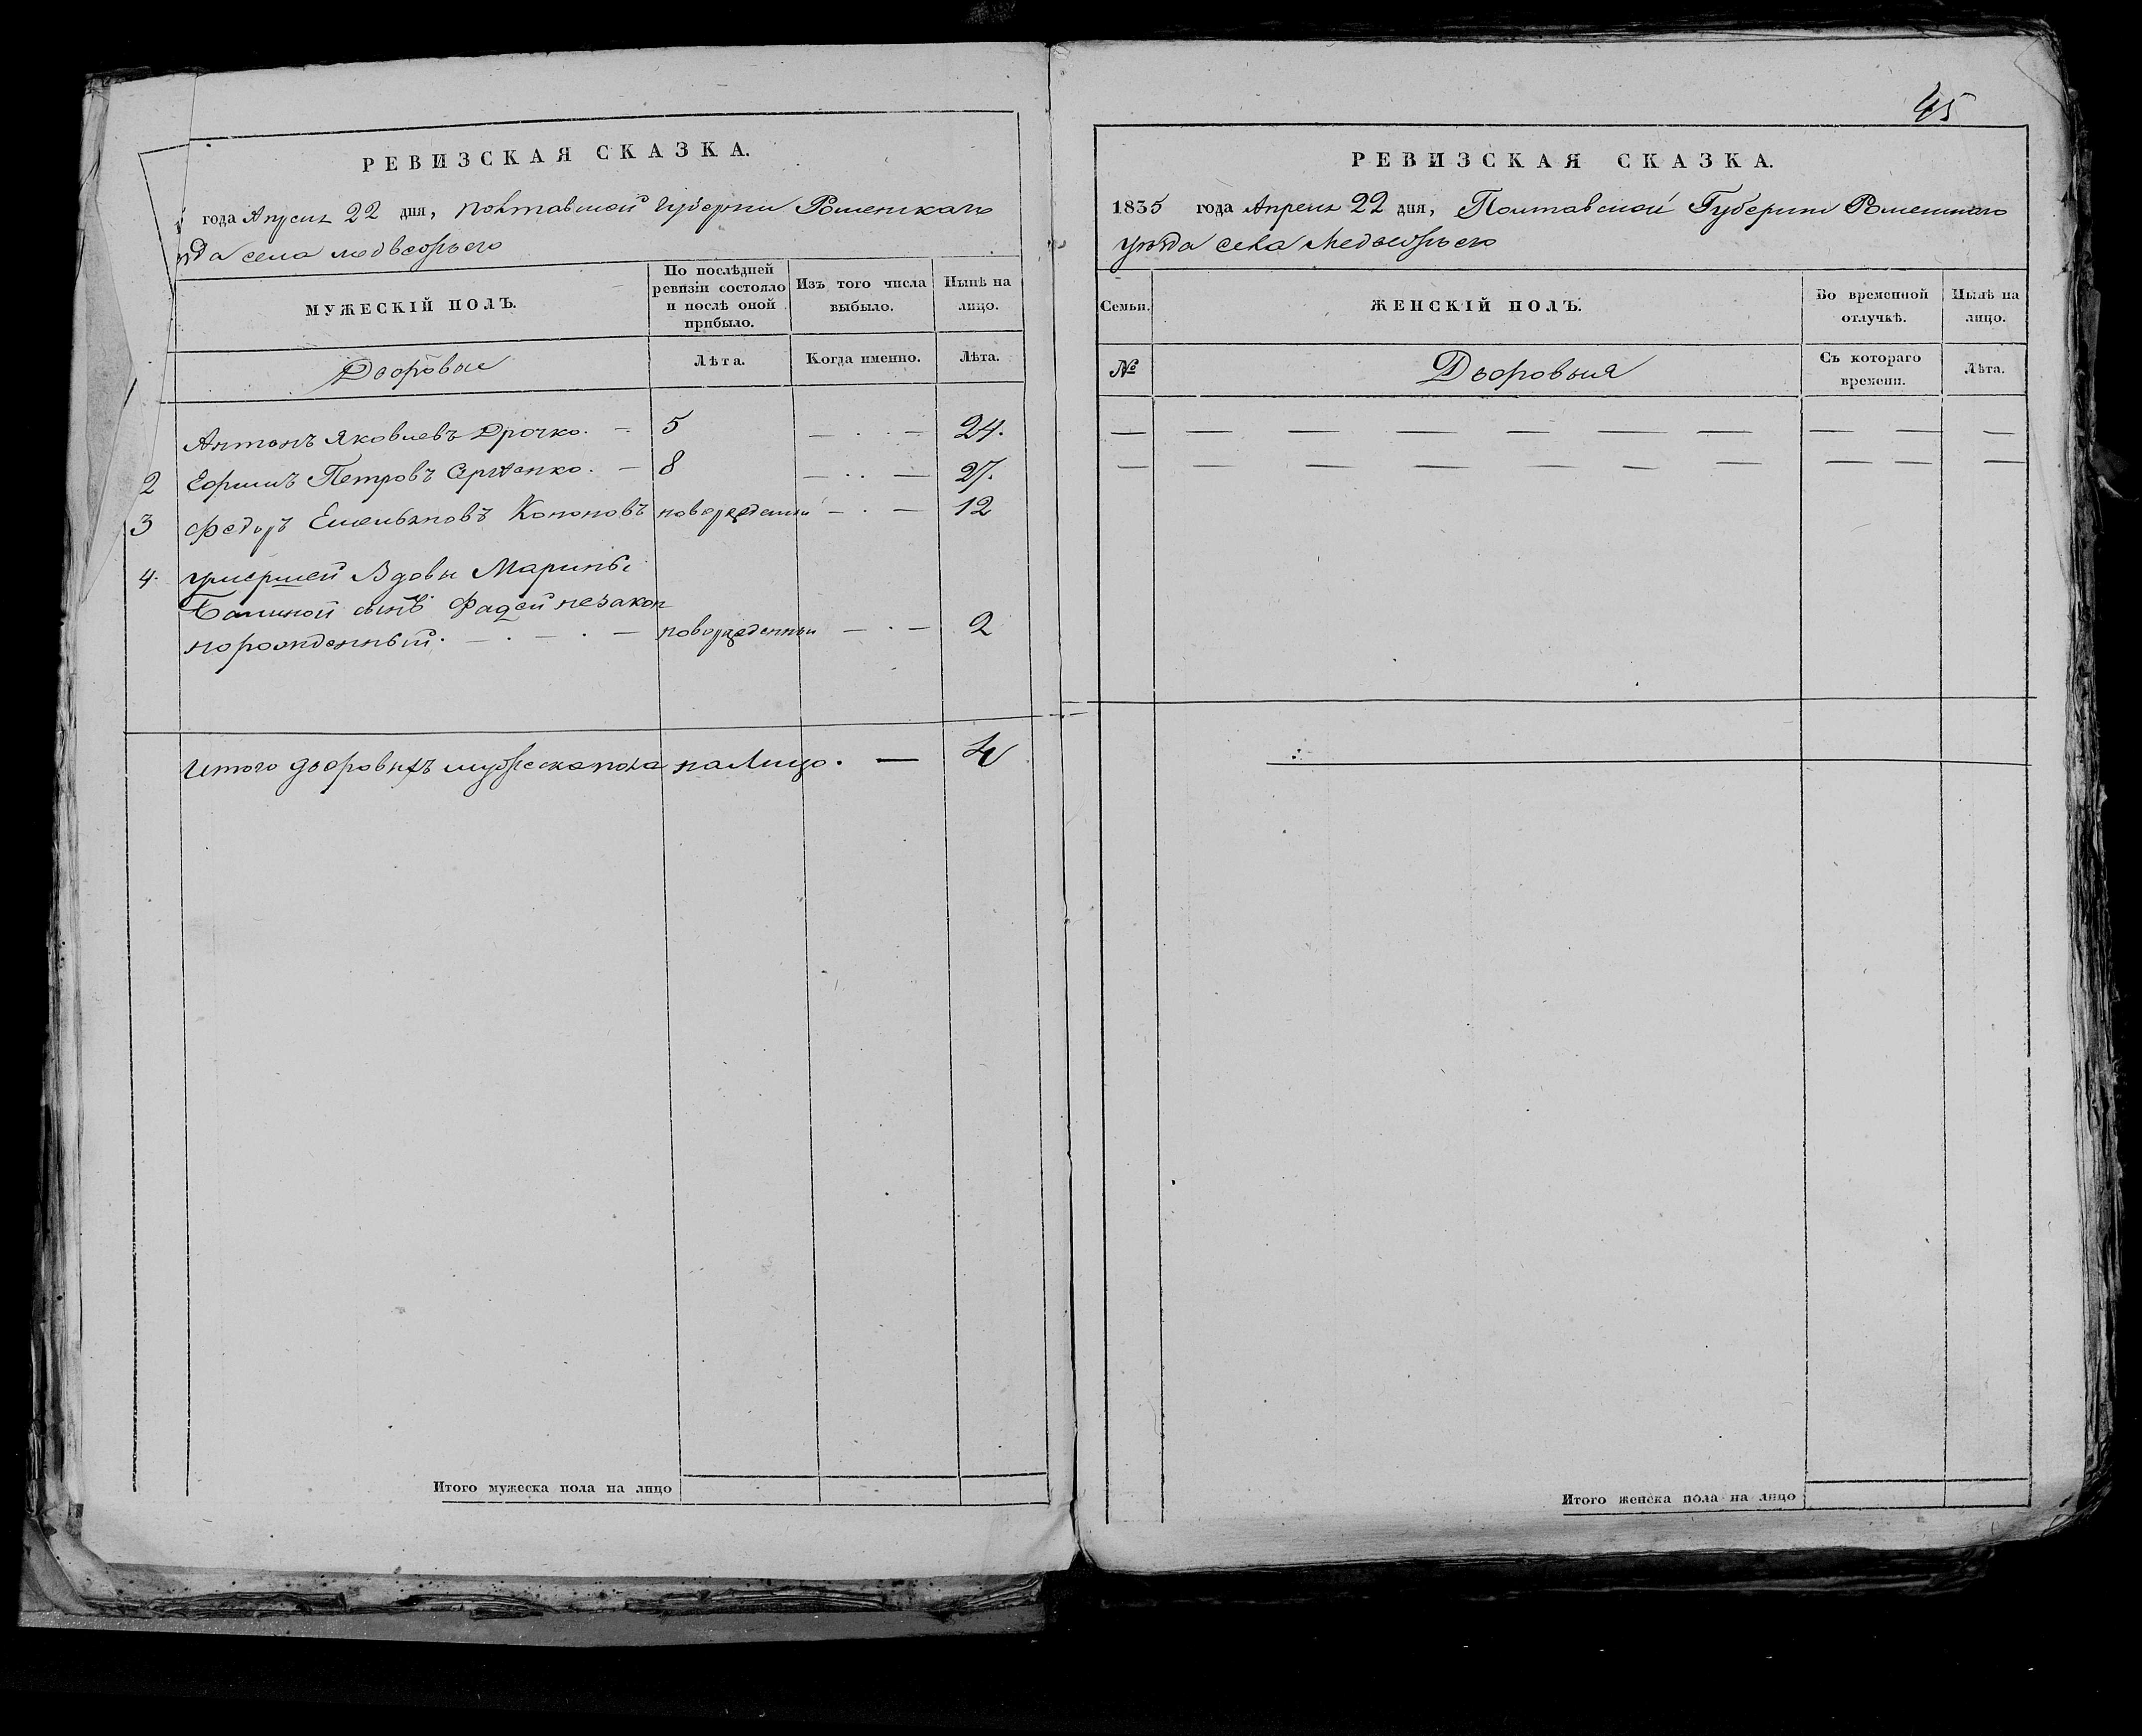 45
РЕВИЗСКАЯ СКАЗКА.
года Апреля 22 дня, Полтавской Губернии Роменскаго
зда села Медвежьего
МУЖЕСКІЙ ПОЛЪ.
По послѣдней ревизіи состояло и послѣ оной прибыло.
Изъ того числа выбыло.
Нынѣ на лицо.
Дворовые
Лѣта.
Когда именно.
Лѣта.
Антонъ Яковлевъ Дрочко. — 5 — . — 24.
2 Ефимъ Петровъ — 8 — . . — 27.
3 Федоръ Емельяновъ Кононовъ новорожденный — . — 12
4. умершей Вдовы Марины
сынъ Фадей незакон
норожденный. — . — . — новорожденный — . — 2
Итого дворовыхъ мужеска пола на Лицо. — 4
Итого мужеска пола на лицо
РЕВИЗСКАЯ СКАЗКА.
1835 года Апреля 22 дня, Полтавской Губернии Роменскаго
уезда села Медвежьего
Семьи.
ЖЕНСКІЙ ПОЛЪ.
Во временной отлучкѣ.
Нынѣ на лицо.
№
Дворовыя
Съ котораго времени.
Лѣта.
Итого женска пола на лицо